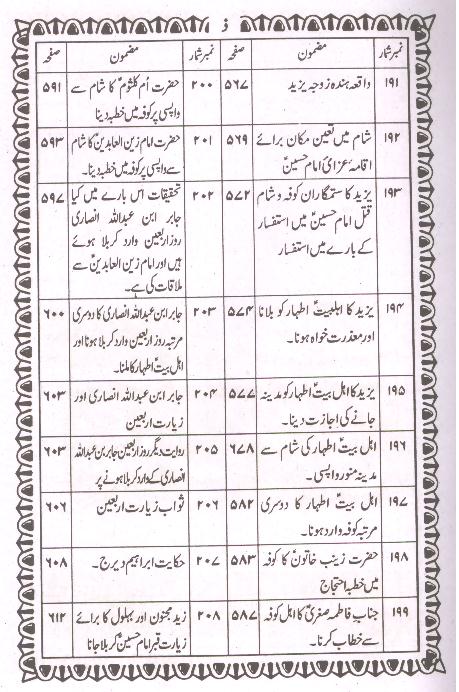 ذ
نمبر شمار مضمون صفحہ
۱۹۱ واقعہ ہندہ زوجہ یزید ۵۶۷
۱۹۲ شام میں تعین مکان برائے ۵۶۹
اقامۂ عزائ امام حسینؑ
۱۹۳ یزید کا ستمگاران کوفہ و شام ۵۷۲
قتل امام حسینؑ میں استفسار
کے بارے میں استفسار
۱۹۴ یزید کا اہلبیتؑ اطہار کو بلانا ۵۷۴
اور معذرت خواہ ہونا۔
۱۹۵ یزید کا اہل بیتؑ اطہار کو مدینہ ۵۷۷
جانے کی اجازت دینا۔
۱۹۶ اہل بیتؑ اطہار کی شام سے ۶۷۸
مدینہ منور واپسی۔
۱۹۷ اہل بیتؑ اطہار کا دوسری ۵۸۲
مرتبہ کوفہ وارد ہونا۔
۱۹۸ حضرت زینب خاتونؑ کا کوفہ ۵۸۳
میں خطبہ احتجاج
۱۹۹ جناب فاطمہ صغریٰؑ کا اہل کوفہ ۵۸۷
سے خطاب کرنا۔
نمبر شمار مضمون صفحہ
۲۰۰ حضرت اُم کلثومؑ کا شام سے ۵۹۱
واپسی پر کوفہ میں خطبہ دینا۔
۲۰۱ حضرت امام زین العابدینؑ کا شام ۵۹۳
سے واپسی پر کوفہ میں خطبہ دینا۔
۲۰۲ تحقیقات اس بارے میں کیا ۵۹۷
جابر ابن عبداللہ انصاری
روز اربعین وارد کربلا ہوئے
ہیں اور امام زین العابدینؑ سے
ملاقات کی ہے۔
۲۰۳ جابر ابن عبداللہ انصاری کا دوسری ۶۰۰
مرتبہ روز اربعین وارد کربلا ہونا اور
اہل بیتؑ اطہار کا ملنا۔
۲۰۴ جابر ابن عبداللہ انصاری اور ۶۰۳
زیارت اربعین
۲۰۵ روایت دیگر روز اربعین جابر بن عبداللہ ۶۰۳
انصاری کے وارد کربلا ہونے پر
۲۰۶ ثواب زیارت اربعین ۶۰۶
۲۰۷ حکایت ابراہیم دیرج۔ ۶۰۸
۲۰۸ زید مجنون اور بہلول کا برائے ۶۱۲
زیارت قبر امام حسینؑ کربلا جانا